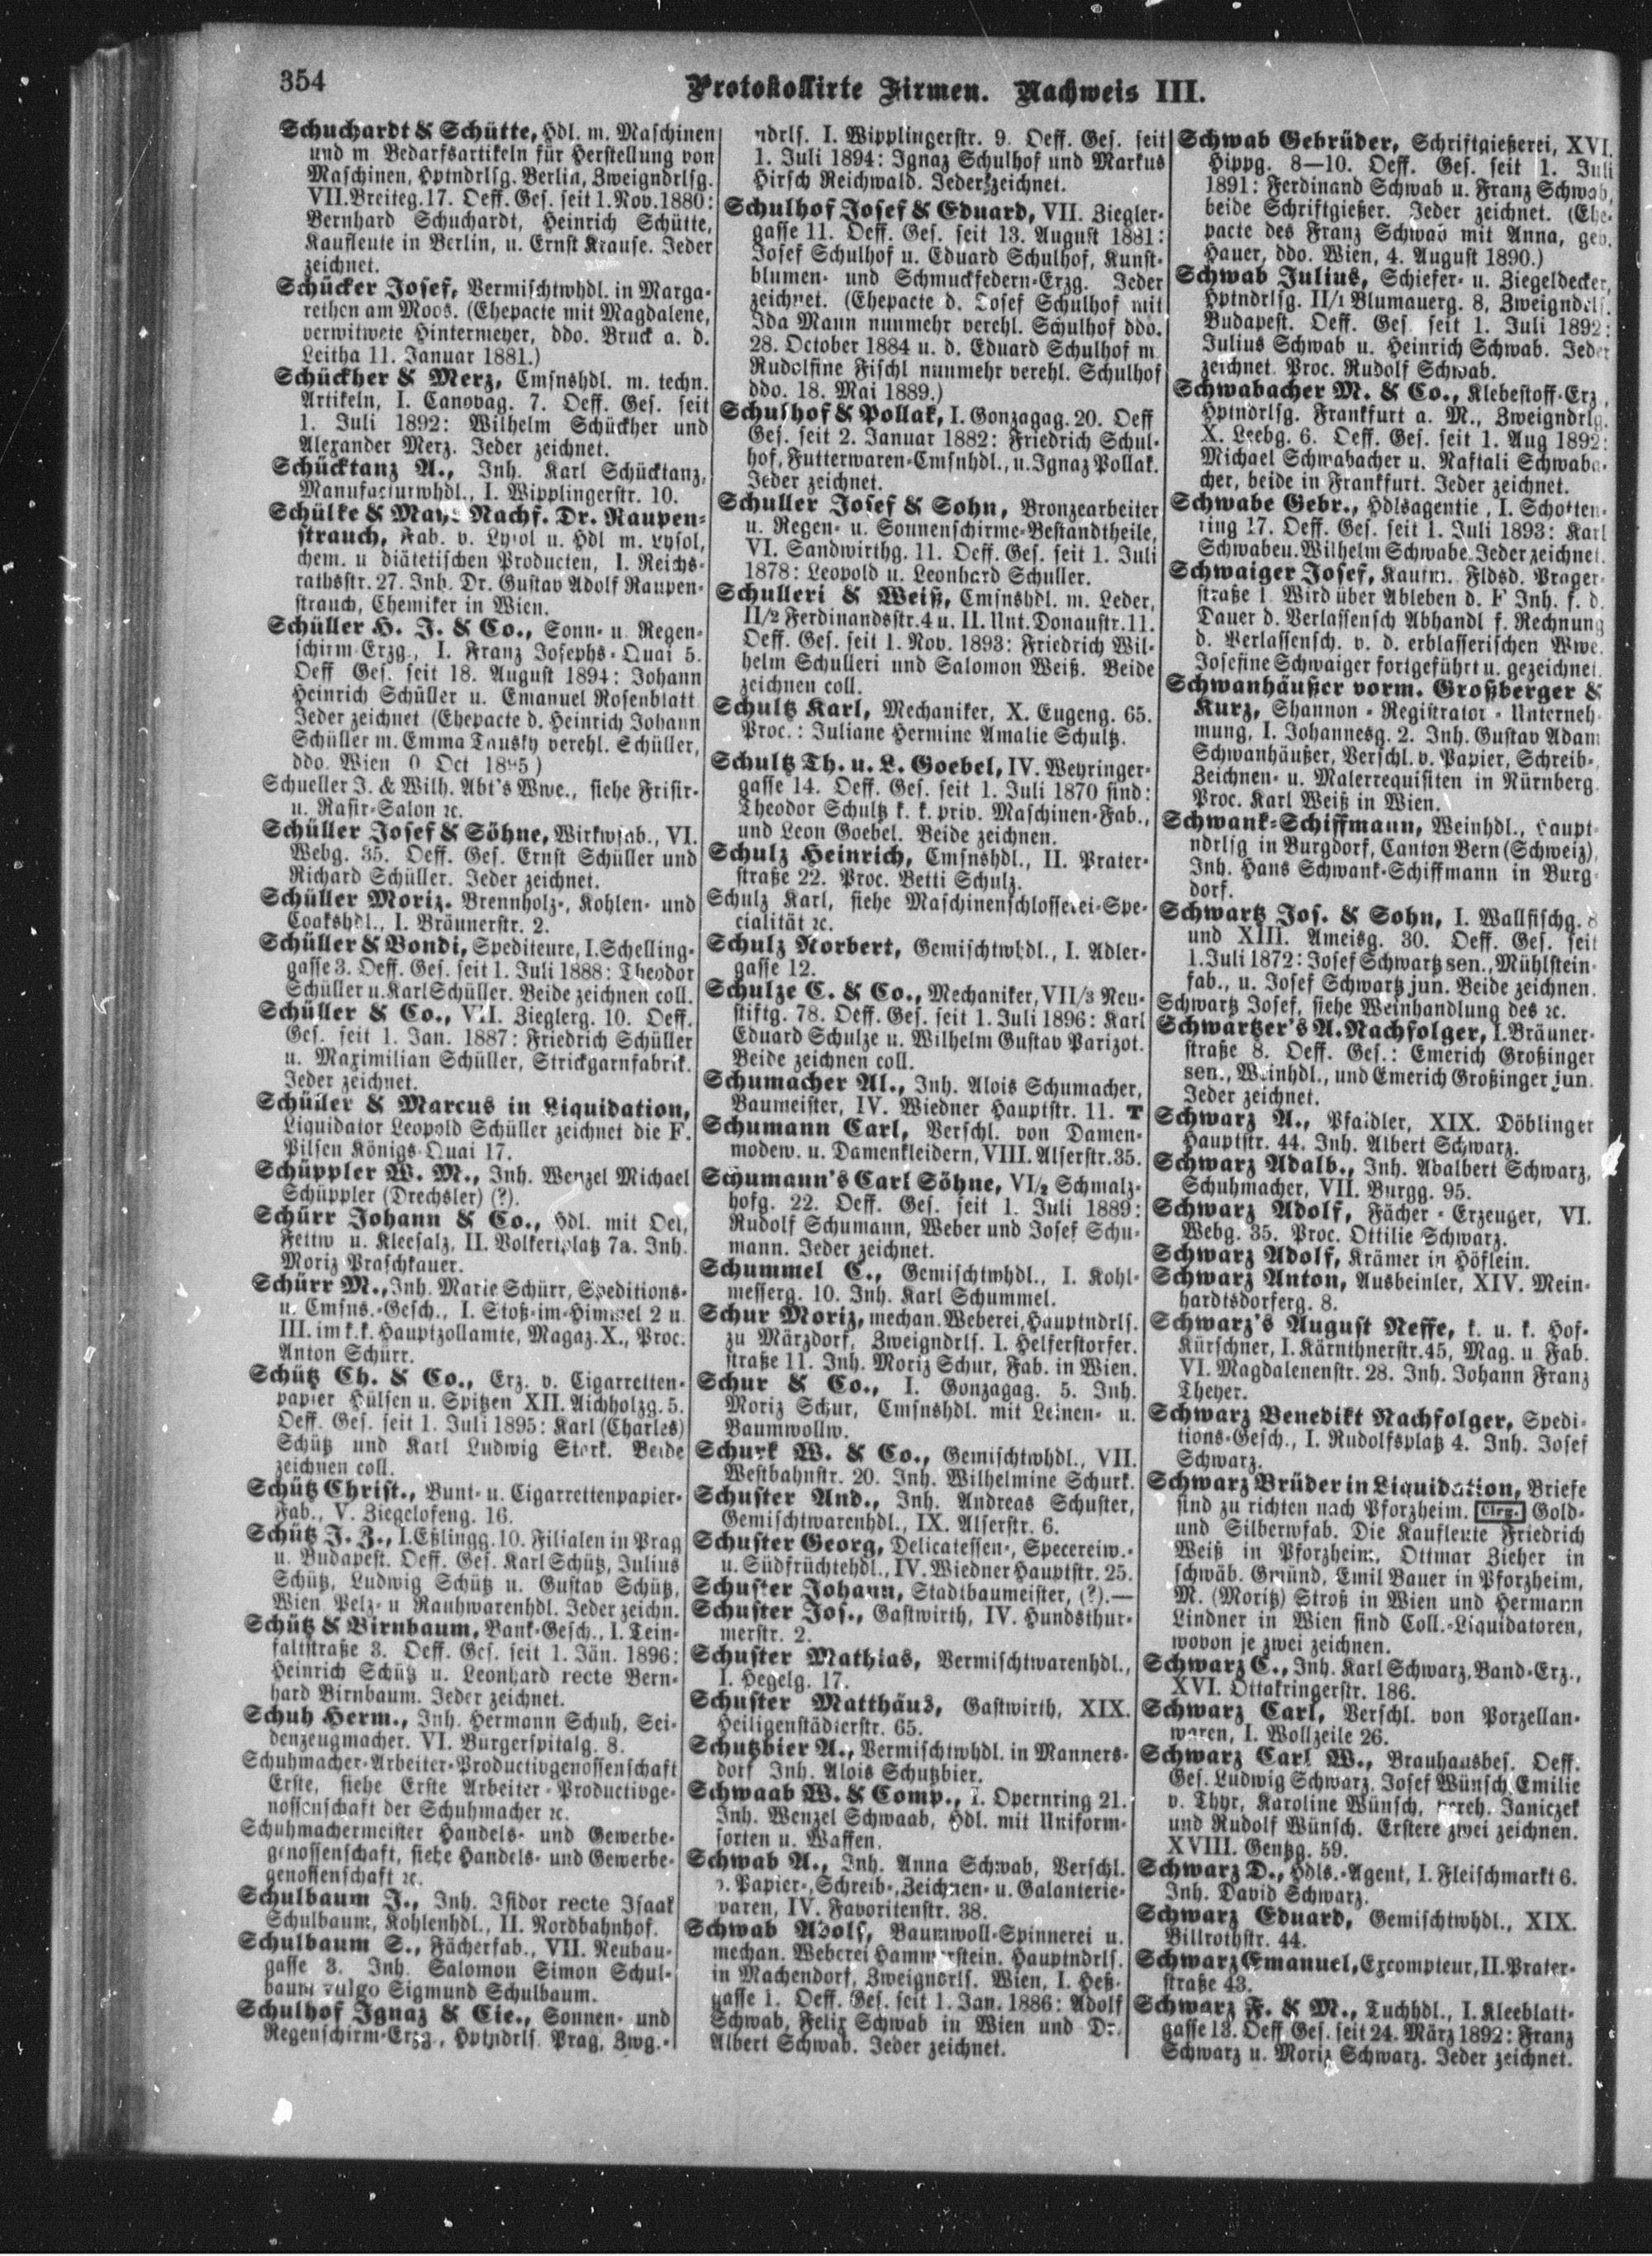 354
Protokollirte Firmen. Nachweis III.
Schuchardt & Schütte, Hdl. m. Maschinen
und m Bedarfsartikeln für Herstellung von
Maschinen, Hptndrlsg. Berlin, Zweigndrlsg.
VII. Breiteg. 17. Oeff. Ges. seit 1. Nov. 1880:
Bernhard Schuchardt, Heinrich Schütte,
Kaufleute in Berlin, u. Ernst Krause. Jeder
zeichnet.
Schücker Josef, Vermischtwhdl. in Marga-
rethen am Moos. (Ehepacte mit Magdalene,
verwitwete Hintermeyer, ddo. Bruck a. d.
Leitha 11. Januar 1881.)
Schückher & Merz, Cmsnshdl. m. techn.
Artikeln, I. Canovag. 7. Oeff. Ges. seit
1. Juli 1892: Wilhelm Schückher und
Alexander Merz. Jeder zeichnet.
Schücktanz A., Inh. Karl Schücktanz,
Manufacturwhdl., I. Wipplingerstr. 10.
Schülke & Nachf. Dr. Raupen-
strauch, Fab. v. Lysol u. Hdl m. Lysol,
chem. u diätetischen Producten, I. Reichs-
rathsstr. 27. Inh. Dr. Gustav Adolf Raupen-
strauch, Chemiker in Wien.
Schüller H. J. & Co., Sonn- u. Regen-
schirm-Erzg., I. Franz Josephs-Quai 5.
Oeff Ges. seit 18. August 1894: Johann
Heinrich Schüller u. Emanuel Rosenblatt
Jeder zeichnet (Ehepacte d. Heinrich Johann
Schüller m. Emma Tausky verehl. Schüller,
ddo. Wien Oct )
Schueller J. & Wilh. Abt's Wwe., siehe Frisir-
u. Rasir-Salon ꝛc.
Schüller Josef & Söhne, Wirkwfab., VI.
Webg. 35. Oeff. Ges. Ernst Schüller und
Richard Schüller. Jeder zeichnet.
Schüller Moriz. Brennholz-, Kohlen- und
Coakshdl., I. Bräunerstr. 2.
Schüller & Bondi, Spediteure, I. Schelling-
gasse 3. Oeff. Ges. seit 1. Juli 1888: Theodor
Schüller u. Karl Schüller. Beide zeichnen coll.
Schüller & Co., VII. Zieglerg. 10. Oeff.
Ges. seit 1. Jan. 1887: Friedrich Schüller
u. Maximilian Schüller, Strickgarnfabrik.
Jeder zeichnet.
Schüller & Marcus in Liquidation,
Liquidator Leopold Schüller zeichnet die F.
Pilsen Königs-Quai 17.
Schüppler W. M., Inh. Wenzel Michael
Schüppler (Drechsler) (?).
Schürr Johann & Co., Hdl. mit Oel,
Fettw u. Kleesalz, II. Volkertplatz 7a. Inh.
Moriz Praschkauer.
Schürr M., Inh. Marie Schürr, Speditions-
u. Cmsns.-Gesch., I. Stoß-im-Himmel 2 u.
III. im k. k. Hauptzollamte, Magaz. X., Proc.
Anton Schürr.
Schütz Ch. & Co., Erz. v. Cigarretten-
papier Hülsen u. Spitzen XII. Aichholzg. 5.
Oeff. Ges. seit 1. Juli 1895: Karl (Charles)
Schütz und Karl Ludwig Stork. Beide
zeichnen coll.
Schütz Christ., Bunt- u. Cigarrettenpapier-
Fab., V. Ziegelofeng. 16.
Schütz J. Z., I. Eßlingg. 10. Filialen in Prag
u. Budapest. Oeff. Ges. Karl Schütz, Julius
Schütz, Ludwig Schütz u. Gustav Schütz,
Wien. Pelz- u Rauhwarenhdl. Jeder zeichn.
Schütz & Birnbaum, Bank-Gesch., I. Tein-
faltstraße 3. Oeff. Ges. seit 1. Jän. 1896:
Heinrich Schütz u. Leonhard recte Bern-
hard Birnbaum. Jeder zeichnet.
Schuh Herm., Inh. Hermann Schuh, Sei-
denzeugmacher. VI. Bürgerspitalg. 8.
Schuhmacher-Arbeiter-Productivgenossenschaft
Erste, siehe Erste Arbeiter-Productivge-
nossenschaft der Schuhmacher ꝛc.
Schuhmachermeister Handels- und Gewerbe-
genossenschaft, siehe Handels- und Gewerbe-
genossenschaft ꝛc.
Schulbaum J., Inh. Isidor recte Isaak
Schulbaum, Kohlenhdl., II. Nordbahnhof.
Schulbaum S., Fächerfab., VII. Neubau-
gasse 3. Inh. Salomon Simon Schul-
baum vulgo Sigmund Schulbaum.
Schulhof Ignaz & Cie., Sonnen- und
Regenschirm-Erzg., Hptndrls. Prag, Zwg.-
ndrls. I. Wipplingerstr. 9. Oeff. Ges. seit
1. Juli 1894: Ignaz Schulhof und Markus
Hirsch Reichwald. Jeder zeichnet.
Schulhof Josef & Eduard, VII. Ziegler-
gasse 11. Oeff. Ges. seit 13. August 1881:
Josef Schulhof u. Eduard Schulhof, Kunst-
blumen- und Schmuckfedern-Erzg. Jeder
zeichnet. (Ehepacte d. Josef Schulhof mit
Ida Mann nunmehr verehl. Schulhof ddo.
28. October 1884 u. d. Eduard Schulhof m.
Rudolfine Fischl nunmehr verehl. Schulhof
ddo. 18. Mai 1889.)
Schulhof & Pollak, I. Gonzagag. 20. Oeff
Ges. seit 2. Januar 1882: Friedrich Schul-
hof, Futterwaren-Cmsnhdl., u. Ignaz Pollak.
Jeder zeichnet.
Schuller Josef & Sohn, Bronzearbeiter
u. Regen- u. Sonnenschirme-Bestandtheile,
VI. Sandwirthg. 11. Oeff. Ges. seit 1. Juli
1878: Leopold u. Leonhard Schuller.
Schulleri & Weiß, Cmsnshdl. m. Leder,
II/2 Ferdinandsstr. 4 u. II. Unt. Donaustr. 11.
Oeff. Ges. seit 1. Nov. 1893: Friedrich Wil-
helm Schulleri und Salomon Weiß. Beide
zeichnen coll.
Schultz Karl, Mechaniker, X. Eugeng. 65.
Proc.: Juliane Hermine Amalie Schultz.
Schultz Th. u. L. Goebel, IV. Weyringer-
gasse 14. Oeff. Ges. seit 1. Juli 1870 sind:
Theodor Schultz k. k. priv. Maschinen-Fab.,
und Leon Goebel. Beide zeichnen.
Schulz Heinrich, Cmsnshdl., II. Prater-
straße 22. Proc. Betti Schulz.
Schulz Karl, siehe Maschinenschlosserei-Spe-
cialität ꝛc.
Schulz Norbert, Gemischtwhdl., I. Adler-
gasse 12.
Schulze C. & Co., Mechaniker, VII/3 Neu-
stiftg. 78. Oeff. Ges. seit 1. Juli 1896: Karl
Eduard Schulze u. Wilhelm Gustav Parizot.
Beide zeichnen coll.
Schumacher Al., Inh. Alois Schumacher,
Baumeister, IV. Wiedner Hauptstr. 11. T
Schumann Carl, Verschl. von Damen-
modew. u. Damenkleidern, VIII. Alserstr. 35.
Schumann's Carl Söhne, VI/2 Schmalz-
hofg. 22. Oeff. Ges. seit 1. Juli 1889:
Rudolf Schumann, Weber und Josef Schu-
mann. Jeder zeichnet.
Schummel C., Gemischtwhdl., I. Kohl-
messerg. 10. Inh. Karl Schummel.
Schur Moriz, mechan. Weberei, Hauptndrls.
zu Märzdorf, Zweigndrls. I. Helferstorfer-
straße 11. Inh. Moriz Schur, Fab. in Wien.
Schur & Co., I. Gonzagag. 5. Inh.
Moriz Schur, Cmsnshdl. mit Leinen- u.
Baumwollw.
Schurk W. & Co., Gemischtwhdl., VII.
Westbahnstr. 20. Inh. Wilhelmine Schurk.
Schuster And., Inh. Andreas Schuster,
Gemischtwarenhdl., IX. Alserstr. 6.
Schuster Georg, Delicatessen-, Specereiw.-
u. Südfrüchtehdl., IV. Wiedner Hauptstr. 25.
Schuster Johann, Stadtbaumeister, (?).—
Schuster Jos., Gastwirth, IV. Hundsthur-
merstr. 2.
Schuster Mathias, Vermischtwarenhdl.,
I. Hegelg. 17.
Schuster Matthäus, Gastwirth, XIX.
Heiligenstädterstr. 65.
Schutzbier A., Vermischtwhdl. in Manners-
dorf Inh. Alois Schutzbier.
Schwaab W. & Comp., I. Opernring 21.
Inh. Wenzel Schwaab, Hdl. mit Uniform-
sorten u. Waffen.
Schwab A., Inh. Anna Schwab, Verschl.
v. Papier-, Schreib-, Zeichnen- u. Galanterie-
waren, IV. Favoritenstr. 38.
Schwab Adolf, Baumwoll-Spinnerei u.
mechan. Weberei Hammerstein. Hauptndrls.
in Machendorf, Zweigndrls. Wien, I. Heß-
gasse 1. Oeff. Ges. seit 1. Jan. 1886: Adolf
Schwab, Felix Schwab in Wien und Dr.
Albert Schwab. Jeder zeichnet.
Schwab Gebrüder, Schriftgießerei, XVI.
Hippg. 8—10. Oeff. Ges. seit 1. Juli
1891: Ferdinand Schwab u. Franz Schwab,
beide Schriftgießer. Jeder zeichnet. (Ehe-
pacte des Franz Schwab mit Anna, geb.
Hauer, ddo. Wien, 4. August 1890.)
Schwab Julius, Schiefer- u. Ziegeldecker,
Hptndrlsg. II/1 Blumauerg. 8, Zweigndrls.
Budapest. Oeff. Ges. seit 1. Juli 1892:
Julius Schwab u. Heinrich Schwab. Jeder
zeichnet. Proc. Rudolf Schwab.
Schwabacher M. & Co., Klebestoff-Erz.,
Hptndrlsg. Frankfurt a. M., Zweigndrlg.
X. Leebg. 6. Oeff. Ges. seit 1. Aug 1892:
Michael Schwabacher u. Naftali Schwaba-
cher, beide in Frankfurt. Jeder zeichnet.
Schwabe Gebr., Hdlsagentie, I. Schotten-
ring 17. Oeff. Ges. seit 1. Juli 1893: Karl
Schwabe u. Wilhelm Schwabe. Jeder zeichnet.
Schwaiger Josef, Kaufm. Fldsd. Prager-
straße 1 Wird über Ableben d. F Inh. f. d.
Dauer d. Verlassensch Abhandl f. Rechnung
d. Verlassensch. v. d. erblasserischen Wwe.
Josefine Schwaiger fortgeführt u. gezeichnet.
Schwanhäußer vorm. Großberger &
Kurz, Shannon-Registrator-Unterneh-
mung, I. Johannesg. 2. Inh. Gustav Adam
Schwanhäußer, Verschl. v. Papier, Schreib-,
Zeichnen- u. Malerrequisiten in Nürnberg.
Proc. Karl Weiß in Wien.
Schwank-Schiffmann, Weinhdl., Haupt-
ndrlsg in Burgdorf, Canton Bern (Schweiz),
Inh. Hans Schwank-Schiffmann in Burg-
dorf.
Schwartz Jos. & Sohn, I. Wallfischg. 8
und XIII. Ameisg. 30. Oeff. Ges. seit
1. Juli 1872: Josef Schwartz sen., Mühlstein-
fab., u. Josef Schwartz jun. Beide zeichnen.
Schwartz Josef, siehe Weinhandlung des ꝛc.
Schwartzer's A. Nachfolger, I. Bräuner-
straße 8. Oeff. Ges.: Emerich Großinger
sen., Weinhdl., und Emerich Großinger jun.
Jeder zeichnet.
Schwarz A., Pfaidler, XIX. Döblinger
Hauptstr. 44. Inh. Albert Schwarz.
Schwarz Adalb., Inh. Adalbert Schwarz,
Schuhmacher, VII. Burgg. 95.
Schwarz Adolf, Fächer-Erzeuger, VI.
Webg. 35. Proc. Ottilie Schwarz.
Schwarz Adolf, Krämer in Höflein.
Schwarz Anton, Ausbeinler, XIV. Mein-
hardtsdorferg. 8.
Schwarz's August Neffe, k. u. k. Hof-
Kürschner, I. Kärnthnerstr. 45, Mag. u Fab.
VI. Magdalenenstr. 28. Inh. Johann Franz
Theyer.
Schwarz Benedikt Nachfolger, Spedi-
tions-Gesch., I. Rudolfsplatz 4. Inh. Josef
Schwarz.
Schwarz Brüder in Liquidation, Briefe
sind zu richten nach Pforzheim. Clrg. Gold-
und Silberwfab. Die Kaufleute Friedrich
Weiß in Pforzheim, Ottmar Zieher in
schwäb. Gmünd, Emil Bauer in Pforzheim,
M. (Moritz) Stroß in Wien und Hermann
Lindner in Wien sind Coll.-Liquidatoren,
wovon je zwei zeichnen.
Schwarz C., Inh. Karl Schwarz, Band-Erz.,
XVI. Ottakringerstr. 186.
Schwarz Carl, Verschl. von Porzellan-
waren, I. Wollzeile 26.
Schwarz Carl W., Brauhausbes. Oeff.
Ges. Ludwig Schwarz, Josef Wünsch Emilie
v. Thyr, Karoline Wünsch, vereh. Janiczek
und Rudolf Wünsch. Erstere zwei zeichnen.
XVIII. Gentzg. 59.
Schwarz D., Hdls.-Agent, I. Fleischmarkt 6.
Inh. David Schwarz.
Schwarz Eduard, Gemischtwhdl., XIX.
Billrothstr. 44.
Schwarz Emanuel, Excompteur, II. Prater-
straße 43.
Schwarz F. & M., Tuchhdl., I. Kleeblatt-
gasse 13. Oeff Ges. seit 24. März 1892: Franz
Schwarz u. Moriz Schwarz. Jeder zeichnet.